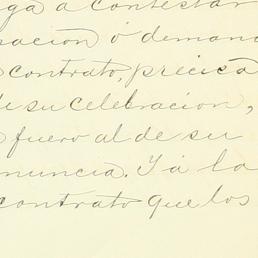 ga a contestar
nacion ó demand
contrato, precisa
de su celebracion,
fuero al de su
nuncia. Y á la
contrato que los